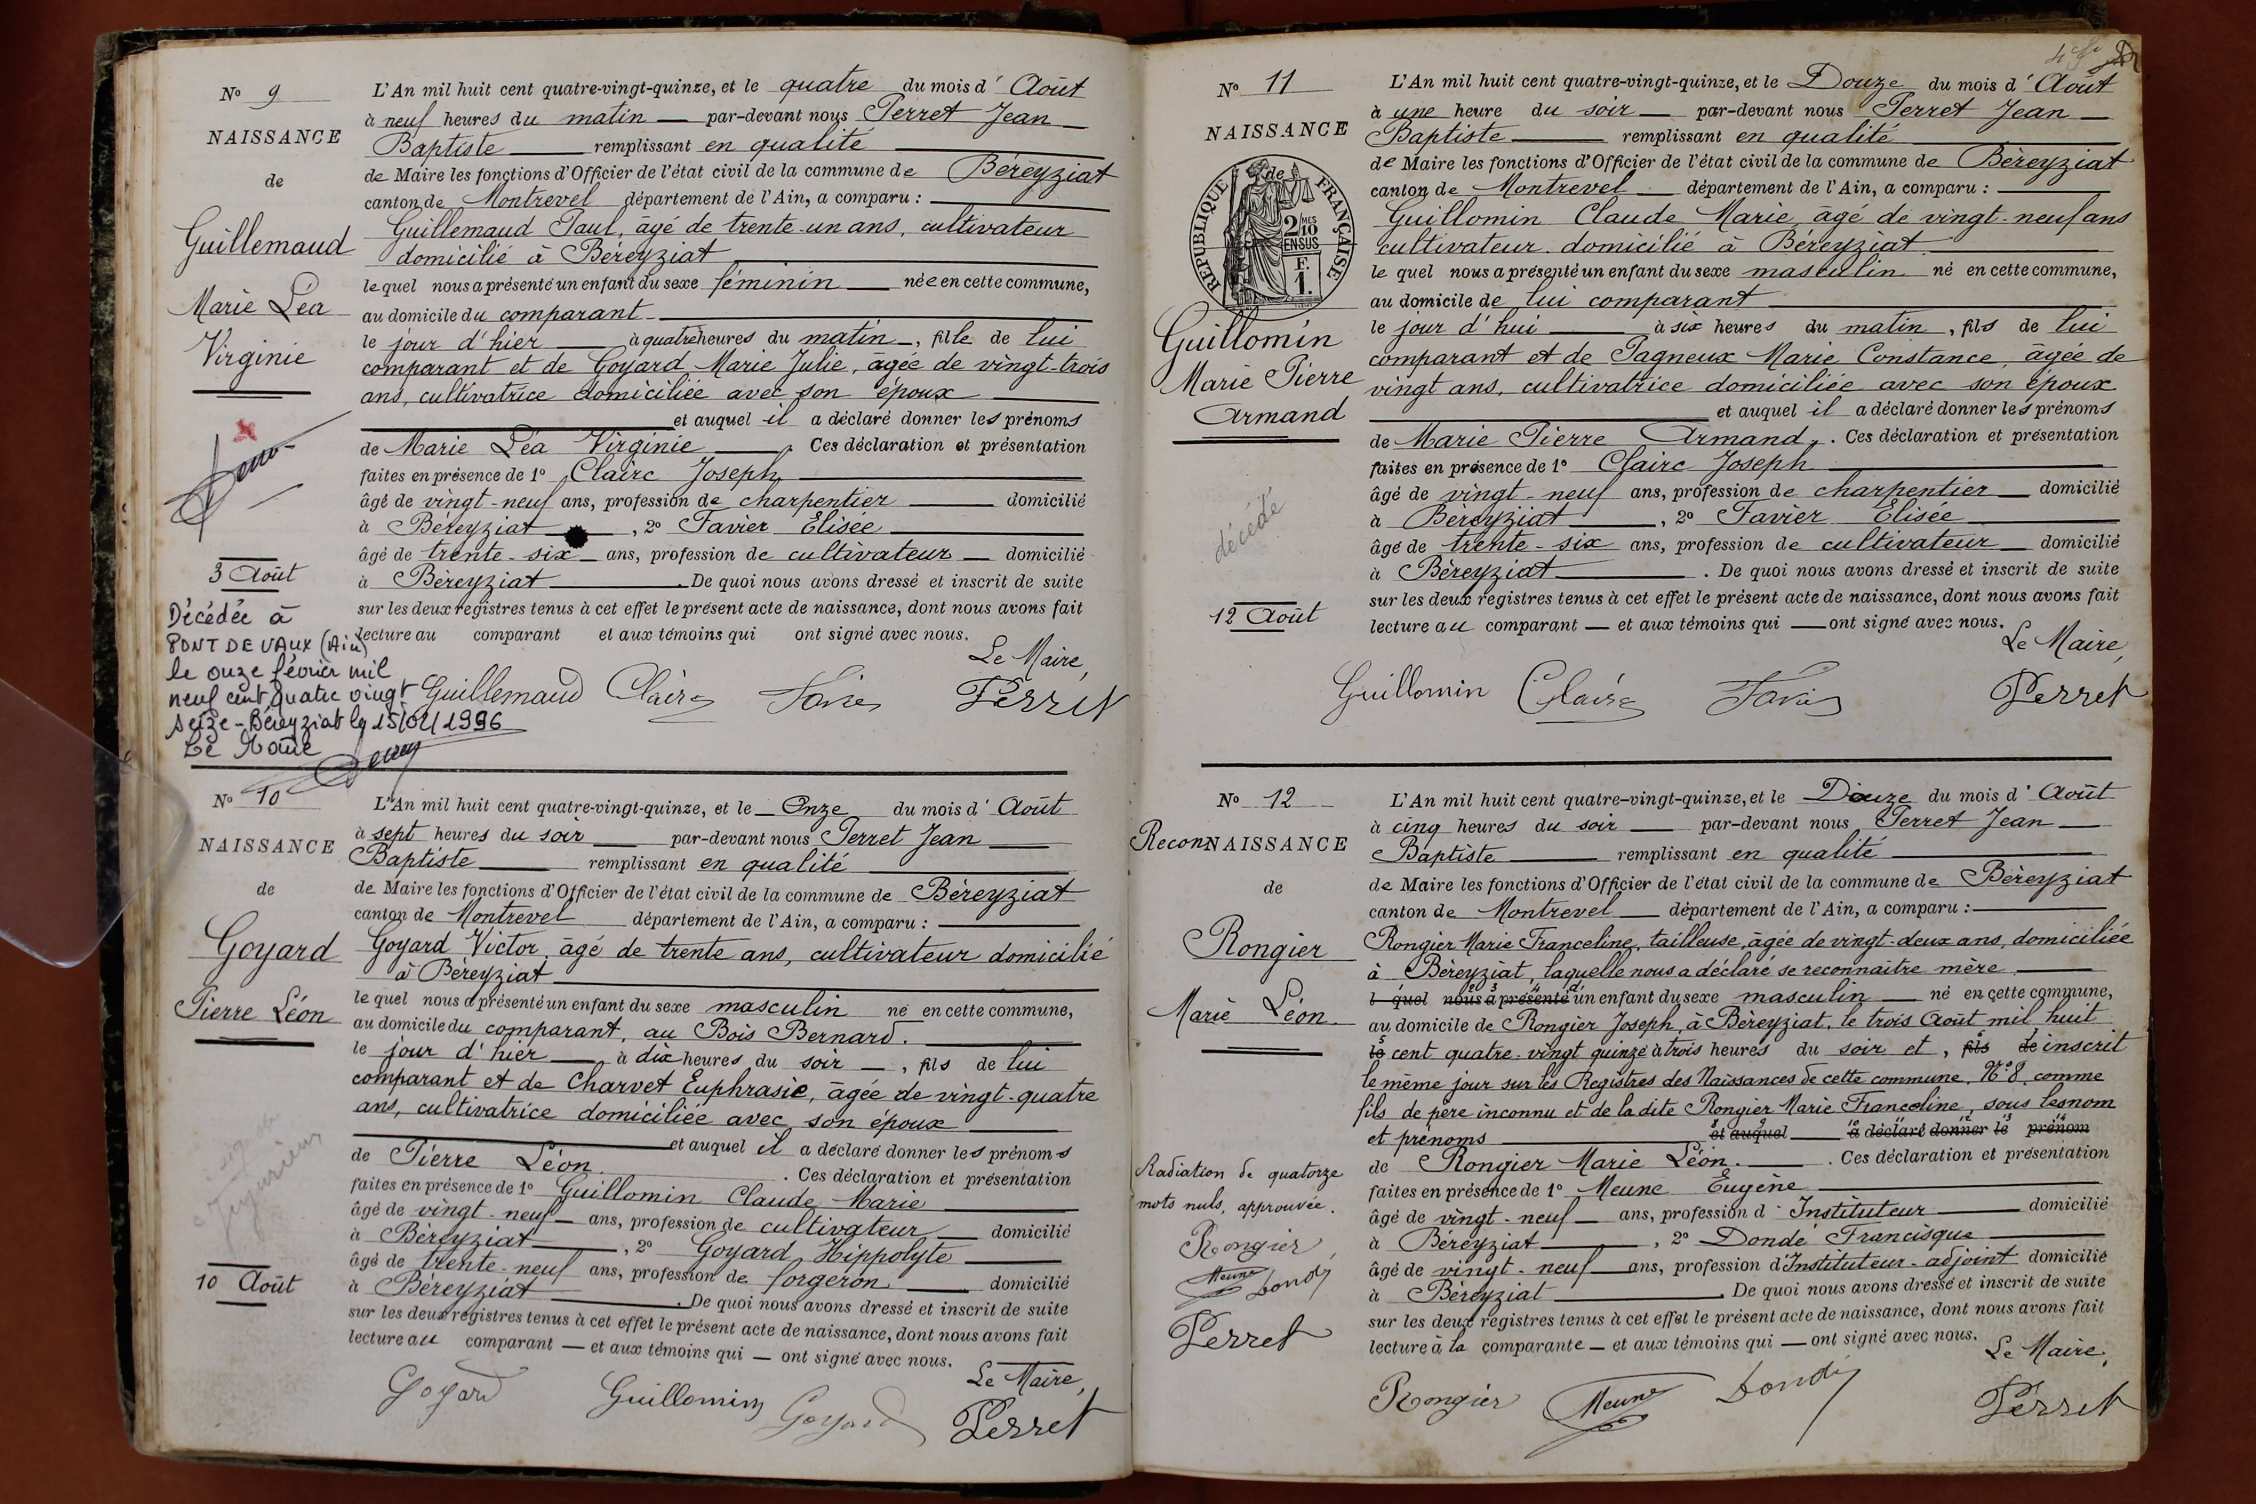 Nº 9
NAISSANCE
de
Guillemaud
Marie Léa
Virginie
3 Août
Décédée à
PONT DE VAUX (Ain)
le onze février mil
neuf cent quatre vingt
seize - Béreyziat le 15/02/1996
Le Maire
L'An mil huit cent quatre-vingt-quinze, et le quatre du mois d' Août
à neuf heures du matin — par-devant nous Perret Jean
Baptiste — remplissant en qualité
de Maire les fonctions d'Officier de l'état civil de la commune de Béreyziat
canton de Montrevel département de l'Ain, a comparu :
Guillemaud Paul, âgé de trente-un ans, cultivateur
domicilié à Béreyziat
lequel nous a présenté un enfant du sexe féminin — née en cette commune,
au domicile du comparant
le jour d'hier — à quatre heures du matin —, fille de lui
comparant et de Goyard Marie Julie, âgée de vingt-trois
ans, cultivatrice domiciliée avec son époux
et auquel il a déclaré donner les prénoms
de Marie Léa Virginie — . Ces déclaration et présentation
faites en présence de 1º Claire Joseph
âgé de vingt-neuf ans, profession de charpentier — domicilié
à Béreyziat — , 2º Favier Elisée
âgé de trente-six — ans, profession de cultivateur — domicilié
à Béreyziat — . De quoi nous avons dressé et inscrit de suite
sur les deux registres tenus à cet effet le présent acte de naissance, dont nous avons fait
lecture au comparant et aux témoins qui ont signé avec nous.
Le Maire,
Guillemaud Claire Favier Perret
Nº 10
NAISSANCE
de
Goyard
Pierre Léon
10 Août
L'An mil huit cent quatre-vingt-quinze, et le Onze du mois d' Août
à sept heures du soir — par-devant nous Perret Jean —
Baptiste — remplissant en qualité
de Maire les fonctions d'Officier de l'état civil de la commune de Béreyziat
canton de Montrevel département de l'Ain, a comparu :
Goyard Victor, âgé de trente ans, cultivateur domicilié
à Béreyziat
lequel nous a présenté un enfant du sexe masculin né en cette commune,
au domicile du comparant, au Bois Bernard.
le jour d'hier — à dix heures du soir —, fils de lui
comparant et de Charvet Euphrasie, âgée de vingt-quatre
ans, cultivatrice domiciliée avec son époux
et auquel il a déclaré donner les prénoms
de Pierre Léon. . Ces déclaration et présentation
faites en présence de 1º Guillomin Claude Marie
âgé de vingt-neuf — ans, profession de cultivateur — domicilié
à Béreyziat — , 2º Goyard Hippolyte
âgé de trente-neuf ans, profession de forgeron — domicilié
à Béreyziat — . De quoi nous avons dressé et inscrit de suite
sur les deux registres tenus à cet effet le présent acte de naissance, dont nous avons fait
lecture au comparant — et aux témoins qui — ont signé avec nous.
Le Maire,
Goyard Guillomin Goyard Perret
Nº 11
NAISSANCE
de
REPUBLIQUE FRANÇAISE
2 MES
10
EN SUS
F.
1.
Guillomin
Marie Pierre
Armand
décédé
12 Août
L'An mil huit cent quatre-vingt-quinze, et le Douze du mois d' Août
à une heure du soir — par-devant nous Perret Jean —
Baptiste — remplissant en qualité
de Maire les fonctions d'Officier de l'état civil de la commune de Béreyziat
canton de Montrevel — département de l'Ain, a comparu : —
Guillomin Claude Marie, âgé de vingt-neuf ans
cultivateur domicilié à Béreyziat
lequel nous a présenté un enfant du sexe masculin né en cette commune,
au domicile de lui comparant
le jour d'hui — à six heures du matin, fils de lui
comparant et de Pagneux Marie Constance, âgée de
vingt ans, cultivatrice domiciliée avec son époux
et auquel il a déclaré donner les prénoms
de Marie Pierre Armand. . Ces déclaration et présentation
faites en présence de 1º Claire Joseph
âgé de vingt-neuf ans, profession de charpentier — domicilié
à Béreyziat — , 2º Favier Elisée
âgé de trente-six ans, profession de cultivateur — domicilié
à Béreyziat — . De quoi nous avons dressé et inscrit de suite
sur les deux registres tenus à cet effet le présent acte de naissance, dont nous avons fait
lecture au comparant — et aux témoins qui — ont signé avec nous.
Le Maire,
Guillomin Claire Favier Perret
Nº 12
ReconNAISSANCE
de
Rongier
Marie Léon
Radiation de quatorze
mots nuls, approuvée.
Rongier
Meune Dondé
Perret
L'An mil huit cent quatre-vingt-quinze, et le Douze du mois d' Août
à cinq heures du soir — par-devant nous Perret Jean —
Baptiste — remplissant en qualité
de Maire les fonctions d'Officier de l'état civil de la commune de Béreyziat
canton de Montrevel — département de l'Ain, a comparu : —
Rongier Marie Franceline, tailleuse, âgée de vingt-deux ans, domiciliée
à Béreyziat, laquelle nous a déclaré se reconnaitre mère —
l quel nous a présenté d'un enfant du sexe masculin — né en cette commune,
au domicile de Rongier Joseph, à Béreyziat, le trois Août mil huit
le cent quatre-vingt quinze à trois heures du soir et, fils de inscrit
le même jour sur les Registres des Naissances de cette commune, Nº 8, comme
fils de père inconnu et de la dite Rongier Marie Franceline, sous les nom
et prénoms — et auquel — a déclaré donner le prénom
de Rongier Marie Léon. — . Ces déclaration et présentation
faites en présence de 1º Meune Eugène
âgé de vingt-neuf — ans, profession d'Instituteur — domicilié
à Béreyziat — , 2º Dondé Francisque
âgé de vingt-neuf — ans, profession d'Instituteur-adjoint domicilié
à Béreyziat — . De quoi nous avons dressé et inscrit de suite
sur les deux registres tenus à cet effet le présent acte de naissance, dont nous avons fait
lecture à la comparante — et aux témoins qui — ont signé avec nous.
Le Maire,
Rongier Meune Dondé Perret